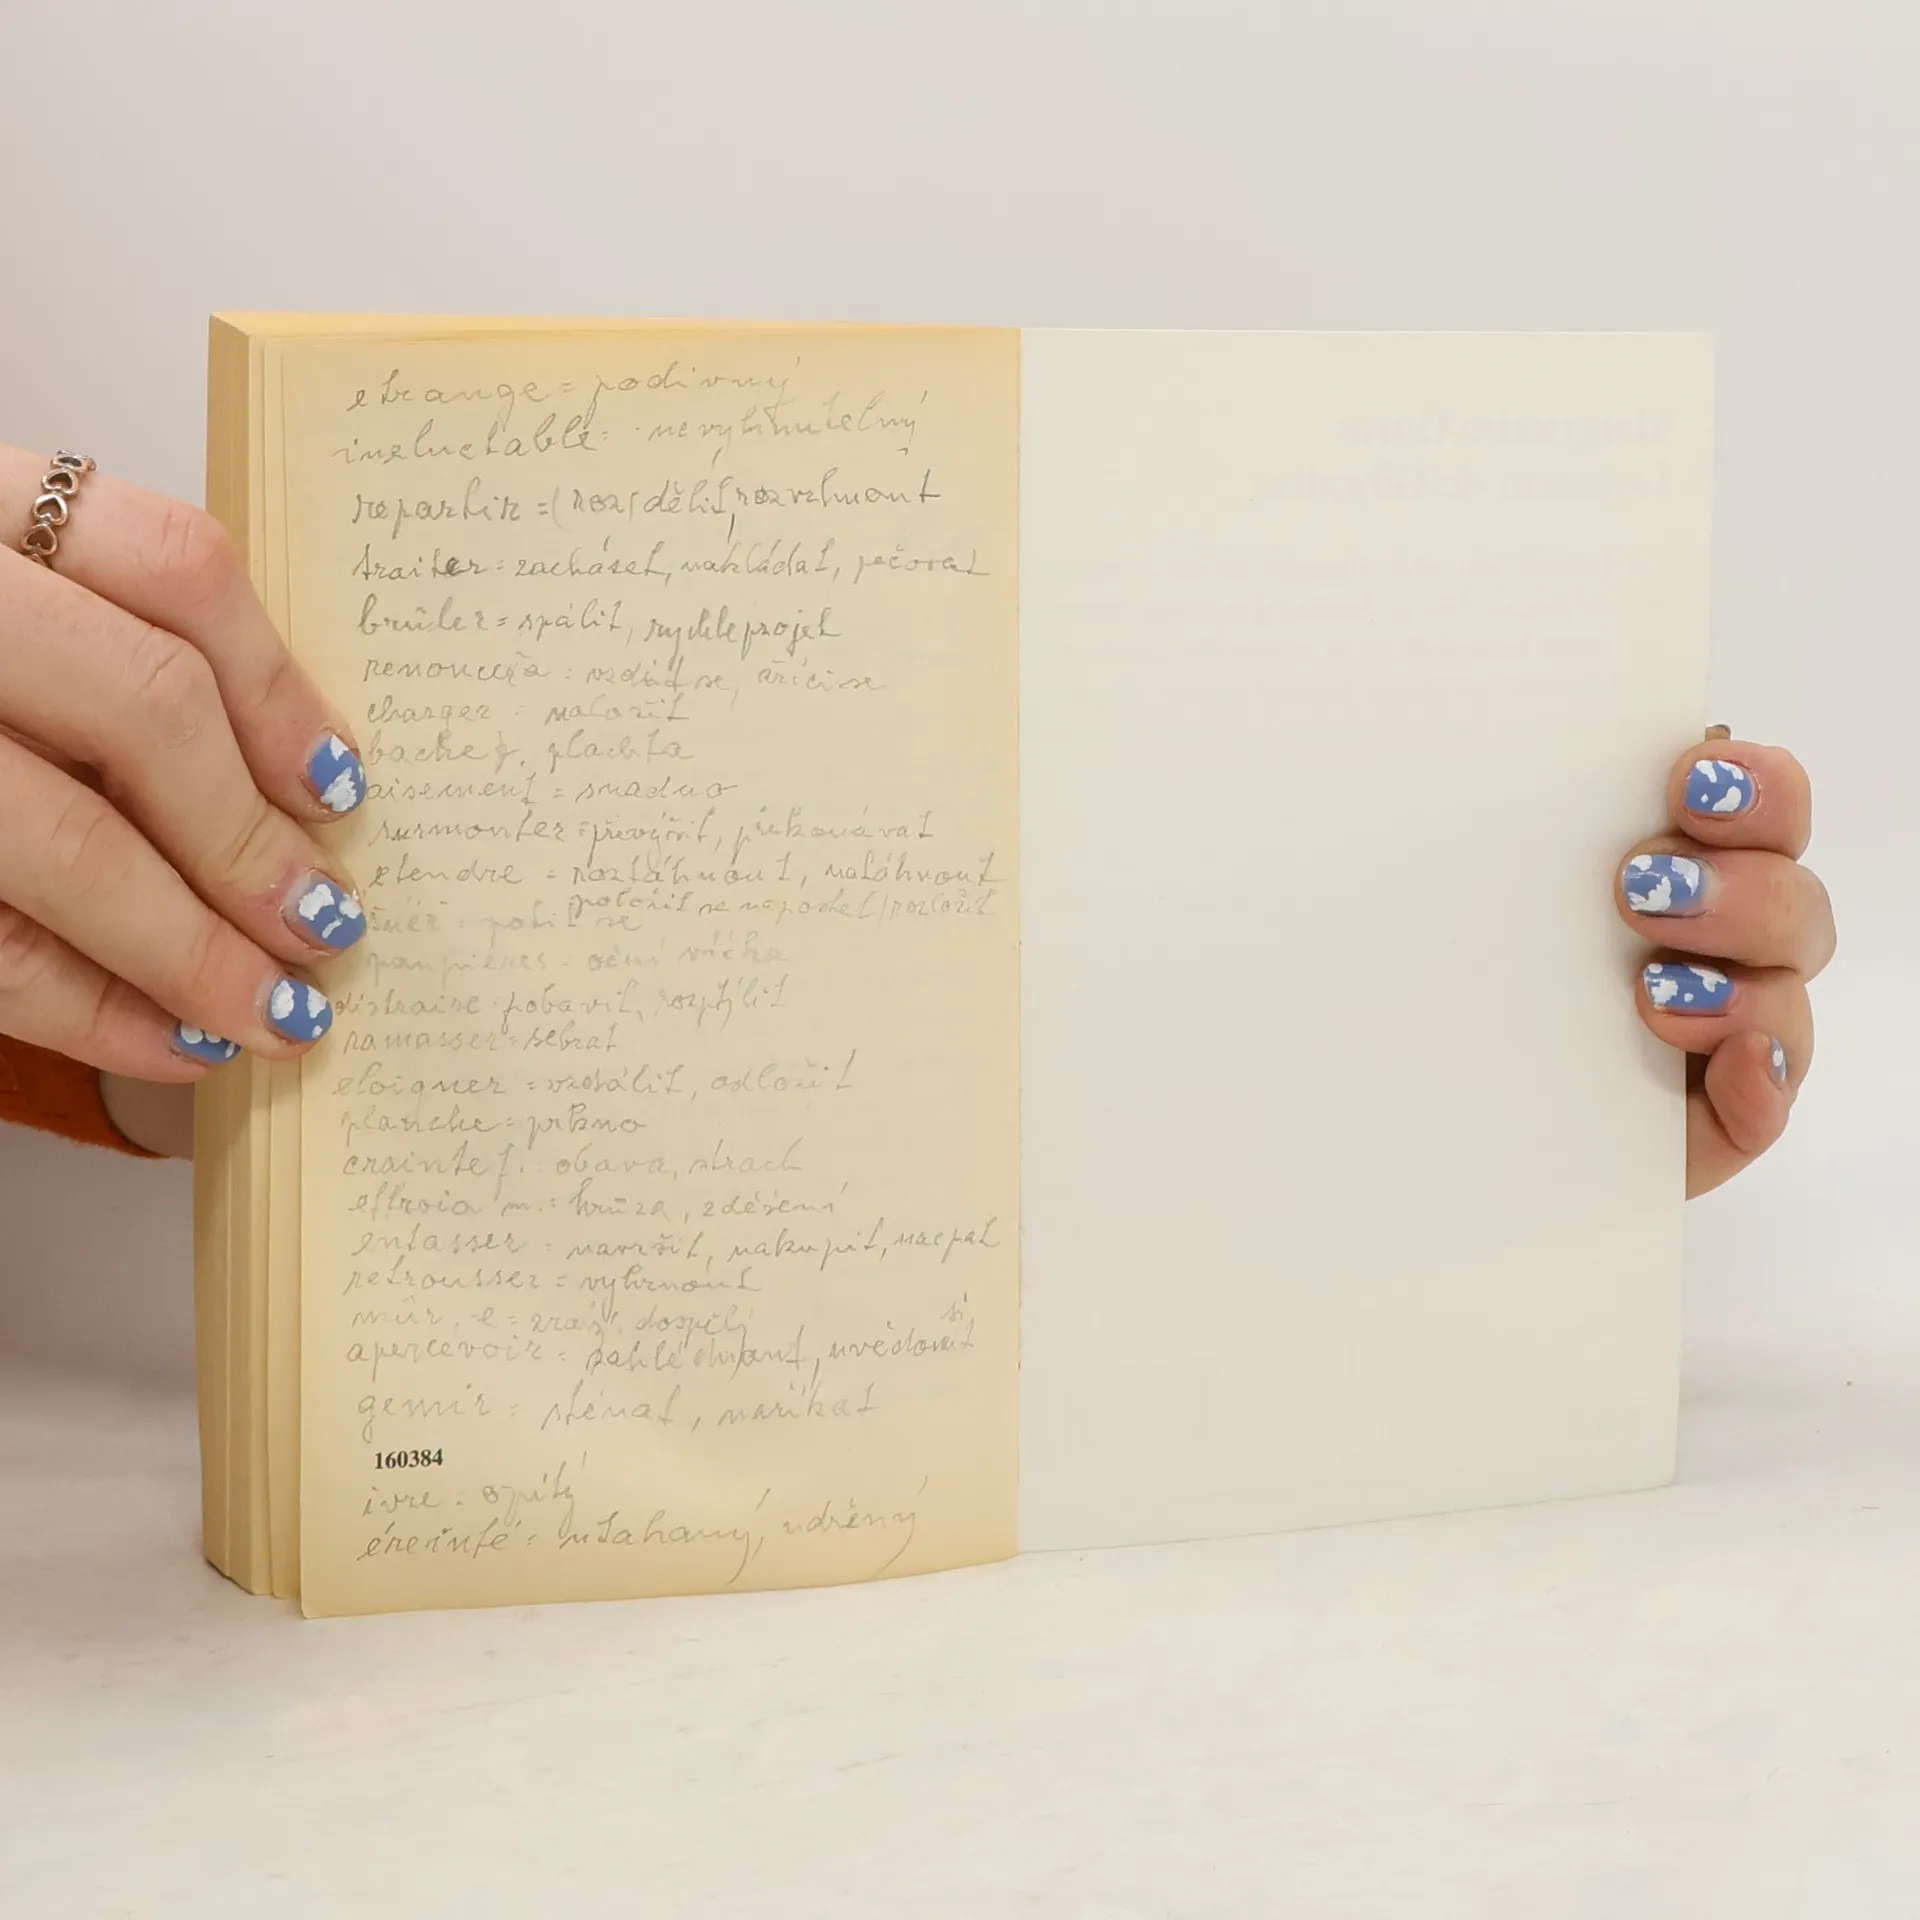 etrange = podivný
ineluctable = nevyhnutelný
repartir = (roz)dělit, rozvrhnout
traiter = zacházet, nakládat, pečovat
brûler = spálit, rychle projet
vzdát se, zříci se
charger = naložit
bache f. plachta
aisement = snadno
surmonter = převýšit, překonávat
etendre = roztáhnout, natáhnout
položit se
potit se
paupieres = oční víčka
distraire pobavit, rozptýlit
ramasser = sebrat
eloigner = vzdálit, odložit
planche = prkno
crainte f. : obava, strach
m. : hrůza, zděšení
entasser : navršit, nakupit, nacpat
retrousser = vyhrnout
mûr, -e = zralý, dospělý
si
apercevoir = zahlédnout, uvědomit
gemir : sténat, naříkat
160384
ivre = opilý
éreinté = utahaný, udřený